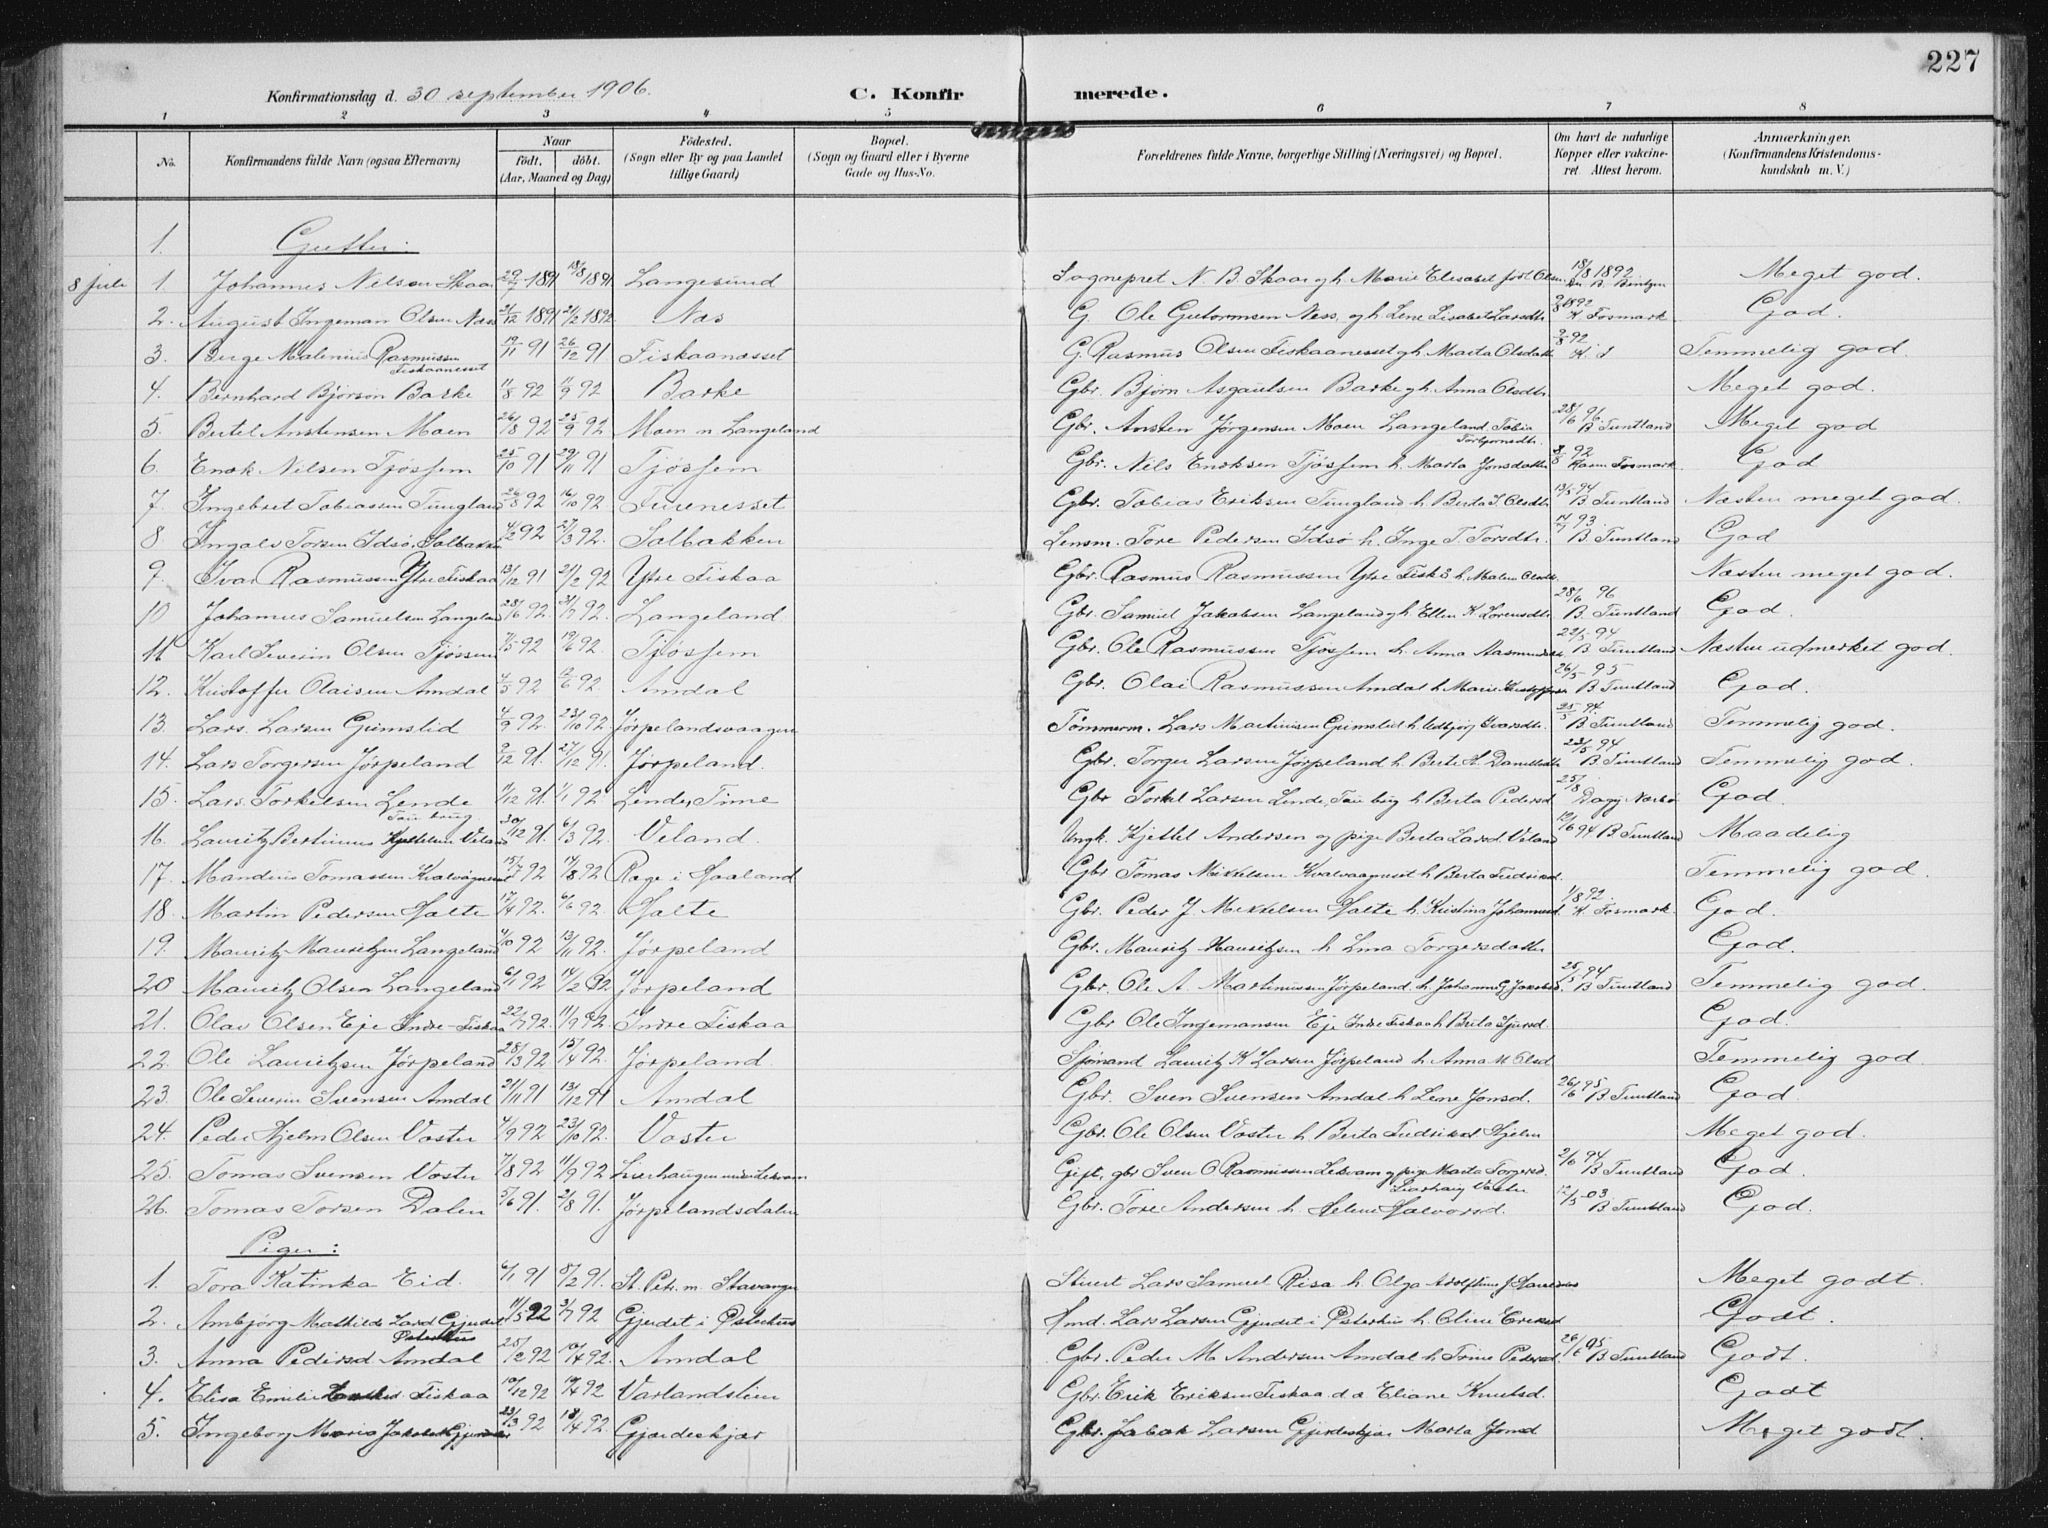 227
Konfirmationsdag d. 30 september 1906. C. Konfirmerede.
1 2 3 4 5 6 7 8
No. Konfirmandens fulde Navn (ogsaa Efternavn) Naar födt. döbt. (Aar, Maaned og Dag) Födested. (Sogn eller By og paa Landet tillige Gaard) Bopæl. (Sogn og Gaard eller i Byerne Gade og Hus-No. Forældrenes fulde Navne, borgerlige Stilling (Næringsvei) og Bopæl. Om havt de naturlige Kopper eller vakcineret. Attest herom. Anmærkninger. (Konfirmandens Kristendomskundskab m. V.)
1. Gutter:
8 juli 1. Johannes Nilsen Skaar 29/7 1891 18/8 1891 Langesund Sognepret N. B. Skaar gh. Marie Elisabet født Olsen 18/8 1892 Meget god.
2. August Ingeman Olsen Næss 21/12 1891 21/2 1892. Næs G. Ole Gutormsen Ness, gh. Lene Lisabet Larsdtr 2/8 1892 K Fosmark God.
3. Berge Malenius Rasmussen Fiskaanesset 19/11 91 26/12 91 Fiskaanæsset G. Rasmus Olsen Fiskaanesset gh. Marta Olsdatter 2/8 92 Temmelig god.
4. Bernhard Bjørson Barke 11/8 92 11/9 92 Barke Gbr. Bjørn Asgautsen Barke gh. Anna Olsdtr. Meget god.
5. Bertel Anstensen Moen 26/8 92 25/9 92 Moen n Langeland Gbr. Ansten Jørgensen Moen Langeland, Tobia Torbjørnsdtr. 28/6 96 B Tuntland Meget god
6. Enok Nilsen Tjøssem 25/10 91 29/11 91 Tjøssem Gbr. Nils Enoksen Tjøssem h. Marta Jonsdatter 2/8 92 Fosmark God
7. Ingebret Tobiassen Tungland 26/8 92 16/10 92. Furenesset Gbr. Tobias Eriksen Tungland h. Berta S. Olsdtr 13/5 94 B Tuntland Næsten meget god.
8 Ingolv Torsen Idsø, Solbakken 4/2 92 27/3 92. Solbakken Lensm. Tore Pedersen Idsø h. Inge T. Torsdtr. 17/7 93. B. Tuntland God
9. Ivar Rasmussen Ytre Fiskaa 13/12 91 21/2 92 Ytre Fiskaa Gbr. Rasmus Rasmussen Ytre Fiskå h. Malen Olsdtr. Næsten meget god.
10 Johannes Samuelsen Langeland 28/6 92. 31/7 92. Langeland Gbr. Samuel Jakobsen Langeland gh. Ellen K Lorensdtr 28/6 96 B. Tuntland God.
11 Karl Severin Olsen Tjøssem 7/5 92 19/6 92. Tjøssem Gbr. Ole Rasmussen Tjøssem h. Anna Aasmundsdtr. 22/5 94 B Tuntland Næsten udmerket god.
12. Kristoffer Olaisen Amdal 4/5 92 12/6 92. Amdal Gbr. Olai Rasmussen Amdal h. Marie Kristoffersdr 26/5 95 B Tuntland God.
13. Lars Larsen Grimslid 4/9 92. 23/10 92. Jørpelandsvaagen Tømmerm. Lars Martinsen Grimslid h. Udbjørg Ivarsdtr. 25/5 94. B Tuntland Temmelig god.
14. Lars Torgersen Jørpeland 2/12 91. 27/12 91. Jørpeland. Gbr. Torger Larsen Jørpeland h. Berte H. Danielsdtr 23/5 94 B Tuntland Temmelig god.
15. Lars Torkelsen Lende Tau brug 7/12 91. 1/1 92 Lende, Time Gbr Torkel Larsen Lende, Tau brug h. Berta Pedersd 25/8 Dagny Nærbø God.
16. Lauritz Bertinius Kjetelsen Veland 30/12 91. 6/3 92 Veland. Ungk. Kjettel Andersen og pige Berta Larsd. Veland 19/6 94 B Tuntland Maadelig
17. Mandius Tomassen Kvalvågneset 15/7 92 14/8 92 Rage i Haaland Gbr Tomas Mikkelsen Kvalvaagneset h Berta Fredriksd. Temmelig god.
18. Martin Pedersen Halte 17/4 92. 6/6 92. Halte Gbr. Peder J Mikkelsen Halte h. Kristina Johannesd. 1/8 92. K. Fosmark. God.
19. Mauritz Mauritzsen Langeland 4/10 92 13/11 92. Jørpeland Gbr. Mauritz Mauritzsen h. Lma Torgersdatter God.
20 Mauritz Olsen Langeland 6/1 92 14/2 92 Jørpeland Gbr. Ole A. Martinussen Jørpeland h. Johanne G. Jakobsd. 25/5 94 B Tuntland Temmelig god.
21. Olav Olsen Eje Indre-Fiskaa 22/7 92. 11/9 92 Indre Fiskaa Gbr Ole Ingemansen Eje Indre Fiskaa h Berta Sjursd. God.
22. Ole Lauritzsen Jørpeland 28/3 92 15/4 92. Jørpeland. Sjømand Lauritz K Larsen Jørpeland h. Anna M. Olsd Temmelig god.
23. Ole Severin Svensen Amdal 21/11 91 13/12 91 Amdal Gbr. Sven Svensen Amdal h Lene Jonsd. 26/6 95 B Tuntland God.
24. Peder Hjelm Olsen Voster 4/9 92 23/10 92. Voster Gbr. Ole Olsen Voster h. Berta Fredriksd. Hjelm Meget god.
25. Tomas Svensen Voster 7/8 92 11/9 92 Gift, gbr Sven O Rasmussen Lekvam og pige Marta Torgersd. Voster 2/6 94 B Tuntland God.
26. Tomas Torsen Dalen 5/6 91. 2/8 91. Jørpelandsdalen Gbr. Tore Andersen h. Helene Halvorsd. 12/5 03 B. Tuntland God.
Piger:
1. Tora Katinka Eid. 6/1 91 8/2 91. St. Petri m. Stavanger Stuert Lars Samuel Risa h. Olga Adolfine Meget godt.
2. Ambjørg Mathilde Larsd Gjerdet Østerhus 11/5 92 3/7 92 Gjerdet i Østerhus Smd. Lars Larsen Gjerdet i Østerhus h. Oline Eriksd Godt.
3. Anna Pedersd Amdal 25/2 92 10/4 92. Amdal Gbr. Peder M Andersen Amdal h Trine Pedersd. 26/6 95 B Tuntland Godt.
4. Elisa Emilie Fiskaa 10/12 92 Varlandslien Gbr. Erik Eriksen Fiskaa. d a Eliane Knutsd. Godt
5. Ingeborg Maria Jakobsd Gjerdeskjær 23/3 92 18/4 92. Gjærdeskjær Gbr. Jakob Larsen Gjerdeskjær Marta Jonsd Meget godt.